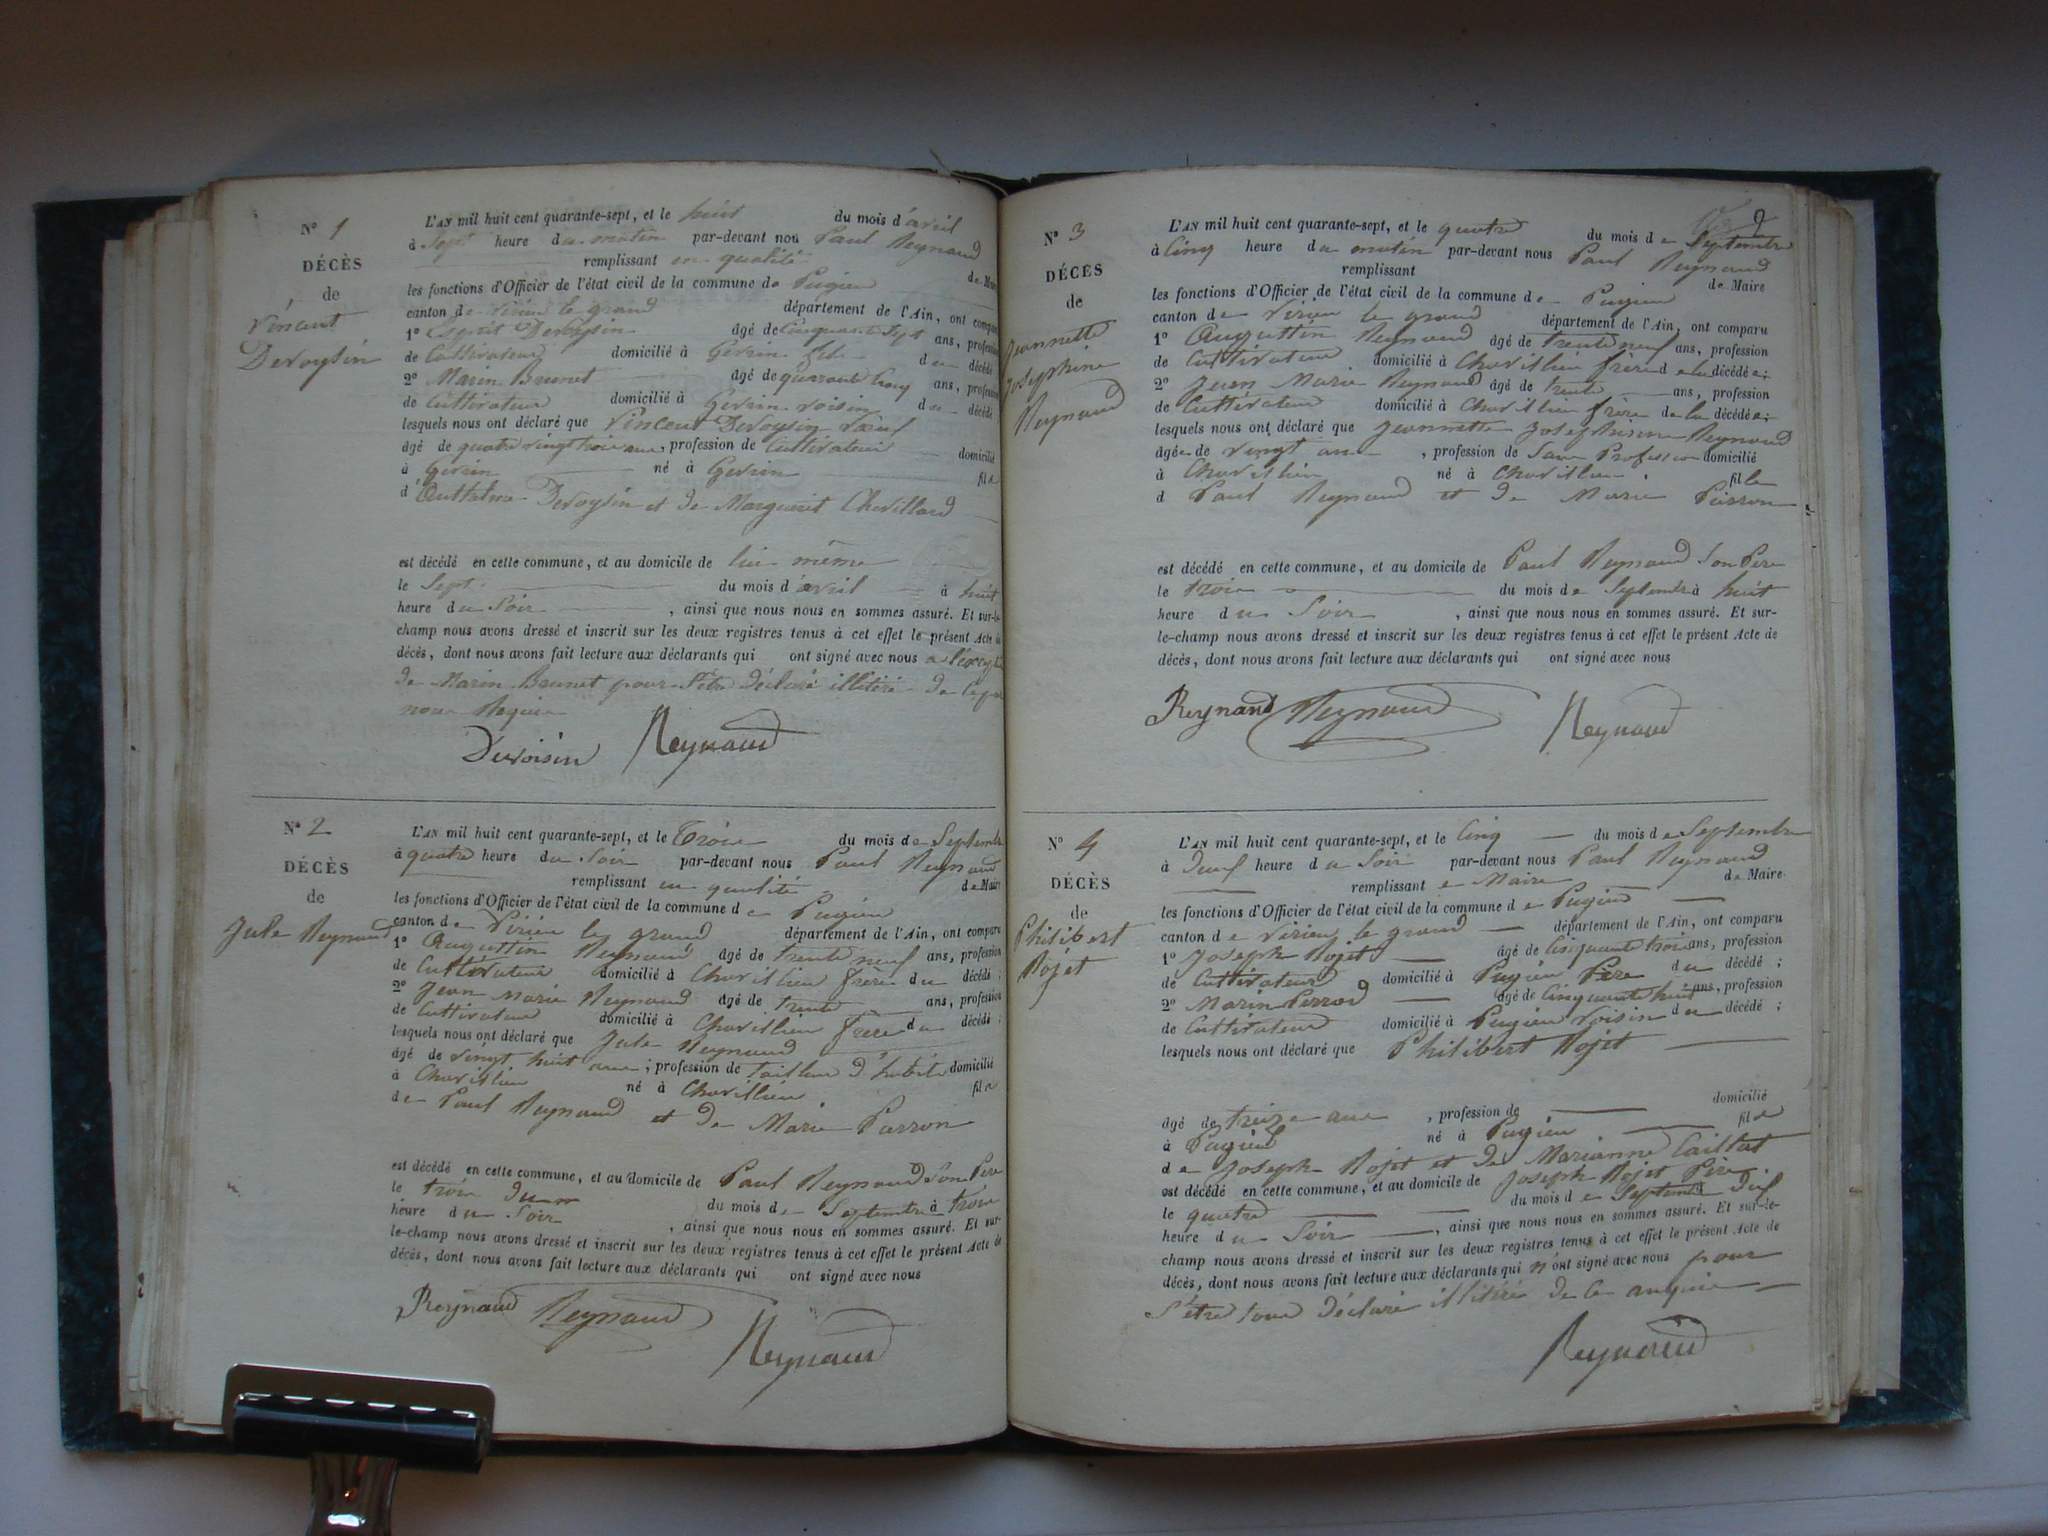 N° 1
DÉCÈS
de
Vincent
Devoysin
L'AN mil huit cent quarante-sept, et le huit du mois d'avril
à Sept heure du matin par-devant nou Paul Reynaud
remplissant en qualité de Maire
les fonctions d'Officier de l'état civil de la commune de Pugieu
canton de Virieu le grand département de l'Ain, ont comparu
1° Esprit Devoysin âgé de Cinquante Sept ans, profession
de Cultivateur domicilié à Gevrin fils du décédé
2° Marin Brunet âgé de quarante Cinq ans, profession
de Cultivateur domicilié à Gevrin voisin du décédé
lesquels nous ont déclaré que Vincent Devoysin
âgé de quatre vingt trois ans, profession de Cultivateur domicilié
à Gevrin né à Gevrin fils
d' Devoysin et de Marguerit Chevillard
est décédé en cette commune, et au domicile de lui même
le Sept du mois d'avril à huit
heure du Soir , ainsi que nous nous en sommes assuré. Et sur-le-
champ nous avons dressé et inscrit sur les deux registres tenus à cet effet le présent Acte de
décès, dont nous avons fait lecture aux déclarants qui ont signé avec nous a l'exception
de Marin Brunet pour S'être déclaré illitéré de ce par
nous Requis
Devoisin Reynaud
N° 2
DÉCÈS
de
Jule Reynaud
L'AN mil huit cent quarante-sept, et le Trois du mois de Septembre
à quatre heure du Soir par-devant nous Paul Reynaud
remplissant en qualité de Maire
les fonctions d'Officier de l'état civil de la commune de Pugieu
canton de Virieu le grand département de l'Ain, ont comparu
1° Auguttin Reynaud âgé de trente neuf ans, profession
de Cultivateur domicilié à Chavillieu frère du décédé ;
2° Jean Marie Reynaud âgé de trente ans, profession
de Cultivateur domicilié à Chavillieu frère du décédé ;
lesquels nous ont déclaré que Jule Reynaud
âgé de vingt huit ans ; profession de tailleur d'habits domicilié
à Chavillieu né à Chavillieu fils
de Paul Reynaud et de Marie Parron
est décédé en cette commune, et au domicile de Paul Reynaud Son Père
le trois du m du mois de Septembre à trois
heure du Soir , ainsi que nous nous en sommes assuré. Et sur-
le-champ nous avons dressé et inscrit sur les deux registres tenus à cet effet le présent Acte de
décès, dont nous avons fait lecture aux déclarants qui ont signé avec nous
Reynaud Reynaud
Reynaud
2
N° 3
DÉCÈS
de
Jeannette
Josephine
Reynaud
L'AN mil huit cent quarante-sept, et le quatre du mois de Septembre
à Cinq heure du matin par-devant nous Paul Reynaud
remplissant de Maire
les fonctions d'Officier de l'état civil de la commune de Pugieu
canton de Virieu le grand département de l'Ain, ont comparu
1° Auguttin Reynaud âgé de trente neuf ans, profession
de Cultivateur domicilié à Chavillieu frère de la décédée ;
2° Jean Marie Reynaud âgé de trente ans, profession
de Cultivateur domicilié à Chavillieu frère de la décédée ;
lesquels nous ont déclaré que Jeannette Josephine Reynaud
âgée de vingt ans , profession de Sans Profession domicilié
à Chavillieu né à Chavillieu fille
d Paul Reynaud et de Marie Parron
est décédé en cette commune, et au domicile de Paul Reynaud Son Père
le trois du mois de Septembre à huit
heure du Soir , ainsi que nous nous en sommes assuré. Et sur-
le-champ nous avons dressé et inscrit sur les deux registres tenus à cet effet le présent Acte de
décès, dont nous avons fait lecture aux déclarants qui ont signé avec nous
Reynaud Reynaud Reynaud
N° 4
DÉCÈS
de
Philibert
Rojet
L'AN mil huit cent quarante-sept, et le Cinq du mois de Septembre
à heure du Soir par-devant nous Paul Reynaud
remplissant e Maire de Maire
les fonctions d'Officier de l'état civil de la commune de Pugieu
canton de Virieu le grand département de l'Ain, ont comparu
1° Joseph Rojet âgé de Cinquante trois ans, profession
de Cultivateur domicilié à Pugieu Père du décédé ;
2° Marin Perrod âgé de Cinquante huit ans, profession
de Cultivateur domicilié à Pugieu Voisin du décédé ;
lesquels nous ont déclaré que Philibert Rojet
âgé de treize ans , profession de domicilié
à Pugieu né à Pugieu fils
de Joseph Rojet et de Marianne Caillat
est décédé en cette commune, et au domicile de Joseph Rojet Père
le quatre du mois de Septembre
heure du Soir , ainsi que nous nous en sommes assuré. Et sur-le-
champ nous avons dressé et inscrit sur les deux registres tenus à cet effet le présent Acte de
décès, dont nous avons fait lecture aux déclarants qui n'ont signé avec nous pour
S'être tous déclaré illitéré de ce
Reynaud